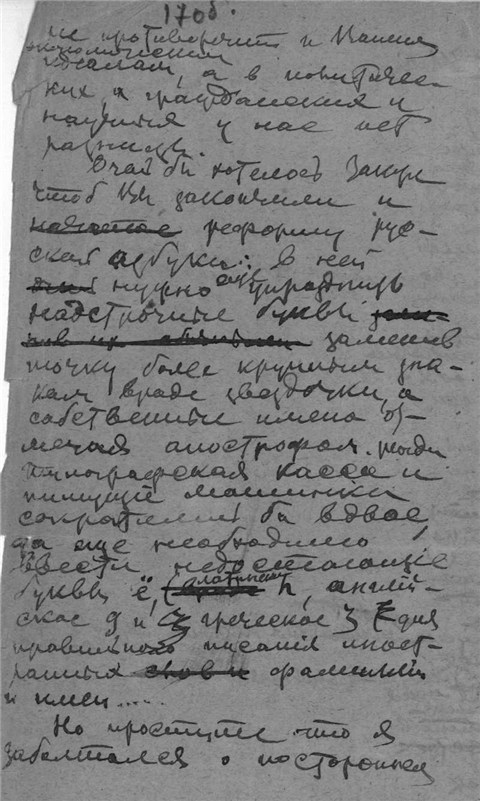 1706.
не противоречит и Вашим
экономическим
идеалам, а в политичес-
ких, и гражданских и
научных у нас нет
разницы.
Очень бы хотелось
чтоб Вы закончили и
реформу рус-
ской азбуки: в ней
нужно еще упразднить
надстрочные буквы
заменив
точку более крупным зна-
ком вроде звездочки, а
собственные имена от-
мечая апострофом. тогда
типографская касса и
пишущіе машинки
сократились бы вдвое,
да еще необходимо
ввести недостающіе
буквы ё, латинское h, англій-
ское g и греческое для
правильного писанія иност-
ранных фамилій
и имен.....
Но простите что я
заболтался о посторонних